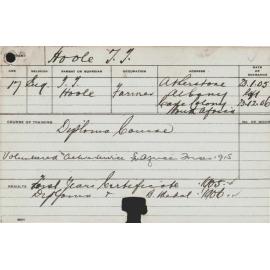 Hoole T. J.
AGE RELIGION PARENT OR GUARDIAN OCCUPATION ADDRESS DATE OF ENTRANCE
17 Eng. T. J. Hoole Farmer Atherstone 23.1.05
Albany
Cape Colony 23.12.06
South Africa
COURSE OF TRAINING
Diploma Course
Volunteered Active Service 1915
RESULTS First Years Certificate 1905
Diploma + B Medal 1906